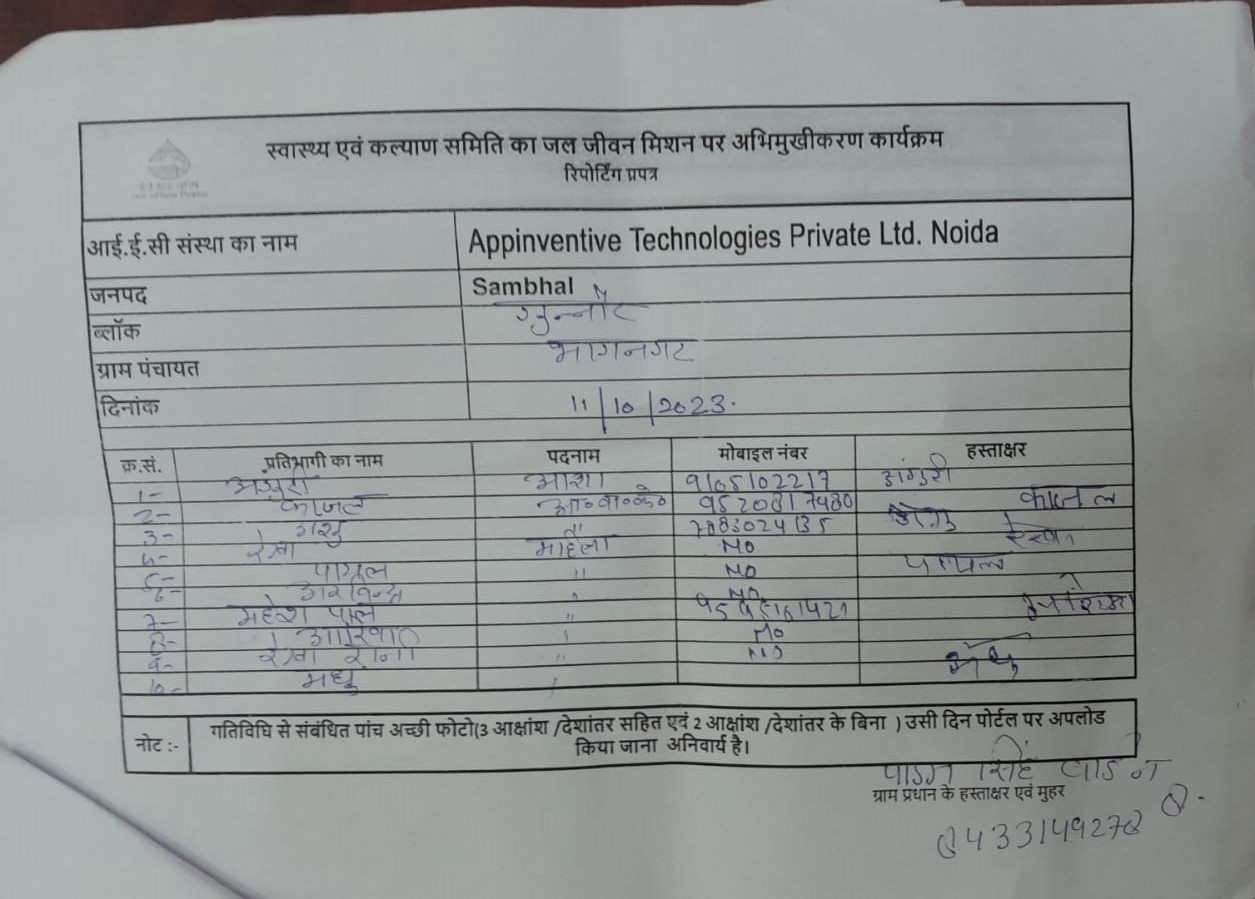 स्वास्थ्य एवं कल्याण समिति का जल जीवन मिशन पर अभिमुखीकरण कार्यक्रम
रिपोर्टिंग प्रपत्र
आई.ई.सी संस्था का नाम Appinventive Technologies Private Ltd. Noida
जनपद Sambhal
ब्लॉक गुन्नौर
ग्राम पंचायत भागनगर
दिनांक 11/10/2023.
क्र.सं. प्रतिभागी का नाम पदनाम मोबाइल नंबर हस्ताक्षर
1- आशा 9105102217 अंगुरी
2- काजल आ०वा०के० काजल
3- 7083024135
4- रेखा महिला NO
5- " NO
6- NO
7- महेश पाल "
8- NO
9- रेखा रानी " NO
10- मधु
नोट :- गतिविधि से संबंधित पांच अच्छी फोटो(3 आक्षांश /देशांतर सहित एवं 2 आक्षांश /देशांतर के बिना ) उसी दिन पोर्टल पर अपलोड
किया जाना अनिवार्य है।
सिंह
ग्राम प्रधान के हस्ताक्षर एवं मुहर